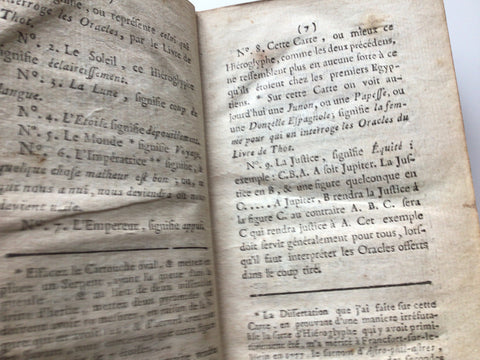 ou représente celui
interroge les Oracles, par le Livre de
Thot.
N°. 2. Le Soleil, ce Hiéroglyphe
signifie éclaircissement.
N°. 3. La Lune, signifie coup de
langue.
N°. 4. L'Etoile signifie dépouillement.
N°. 5. Le Monde * signifie Voyage.
N°. 6. L'Impératrice ** signifie, à
quelque chose malheur est bon; ou, ce
nous a nui, nous deviendra ou nous
devient utile.
N°. 7. L'Empereur, signifie appui.
* Effacez le Cartouche ovale, & mettez-en
un Serpent, ayant la queue
(7)
N°. 8. Cette Carte, ou mieux ce
Hiéroglyphe, comme les deux précédens,
ne ressemblent plus en aucune sorte à ce
qu'ils étoient chez les premiers Egyp-
tiens. * Sur cette Carte on voit au-
jourd'hui une Junon, ou une Papesse, ou
une Donzelle Espagnole; signifie la fem-
me pour qui on interroge les Oracles du
Livre de Thot.
N°. 9. La Justice, signifie Équité:
exemple: C.B.A. A soit Jupiter. La Jus-
tice en B, & une figure quelconque en
C.... A Jupiter, B rendra la Justice à
la figure C. au contraire A. B. C.
C qui rendra justice à A. Cet exemple
doit servir généralement pour tous, lors-
qu'il faut interpréter les Oracles offerts
dans le coup tiré.
* La Dissertation que j'ai faite sur cette
Carte, en prouvant d'une maniere irréfuta-
ble la suite d'Hiéroglyphe qui y avoit primi-
m'a mérité à Francfort-sur-le-